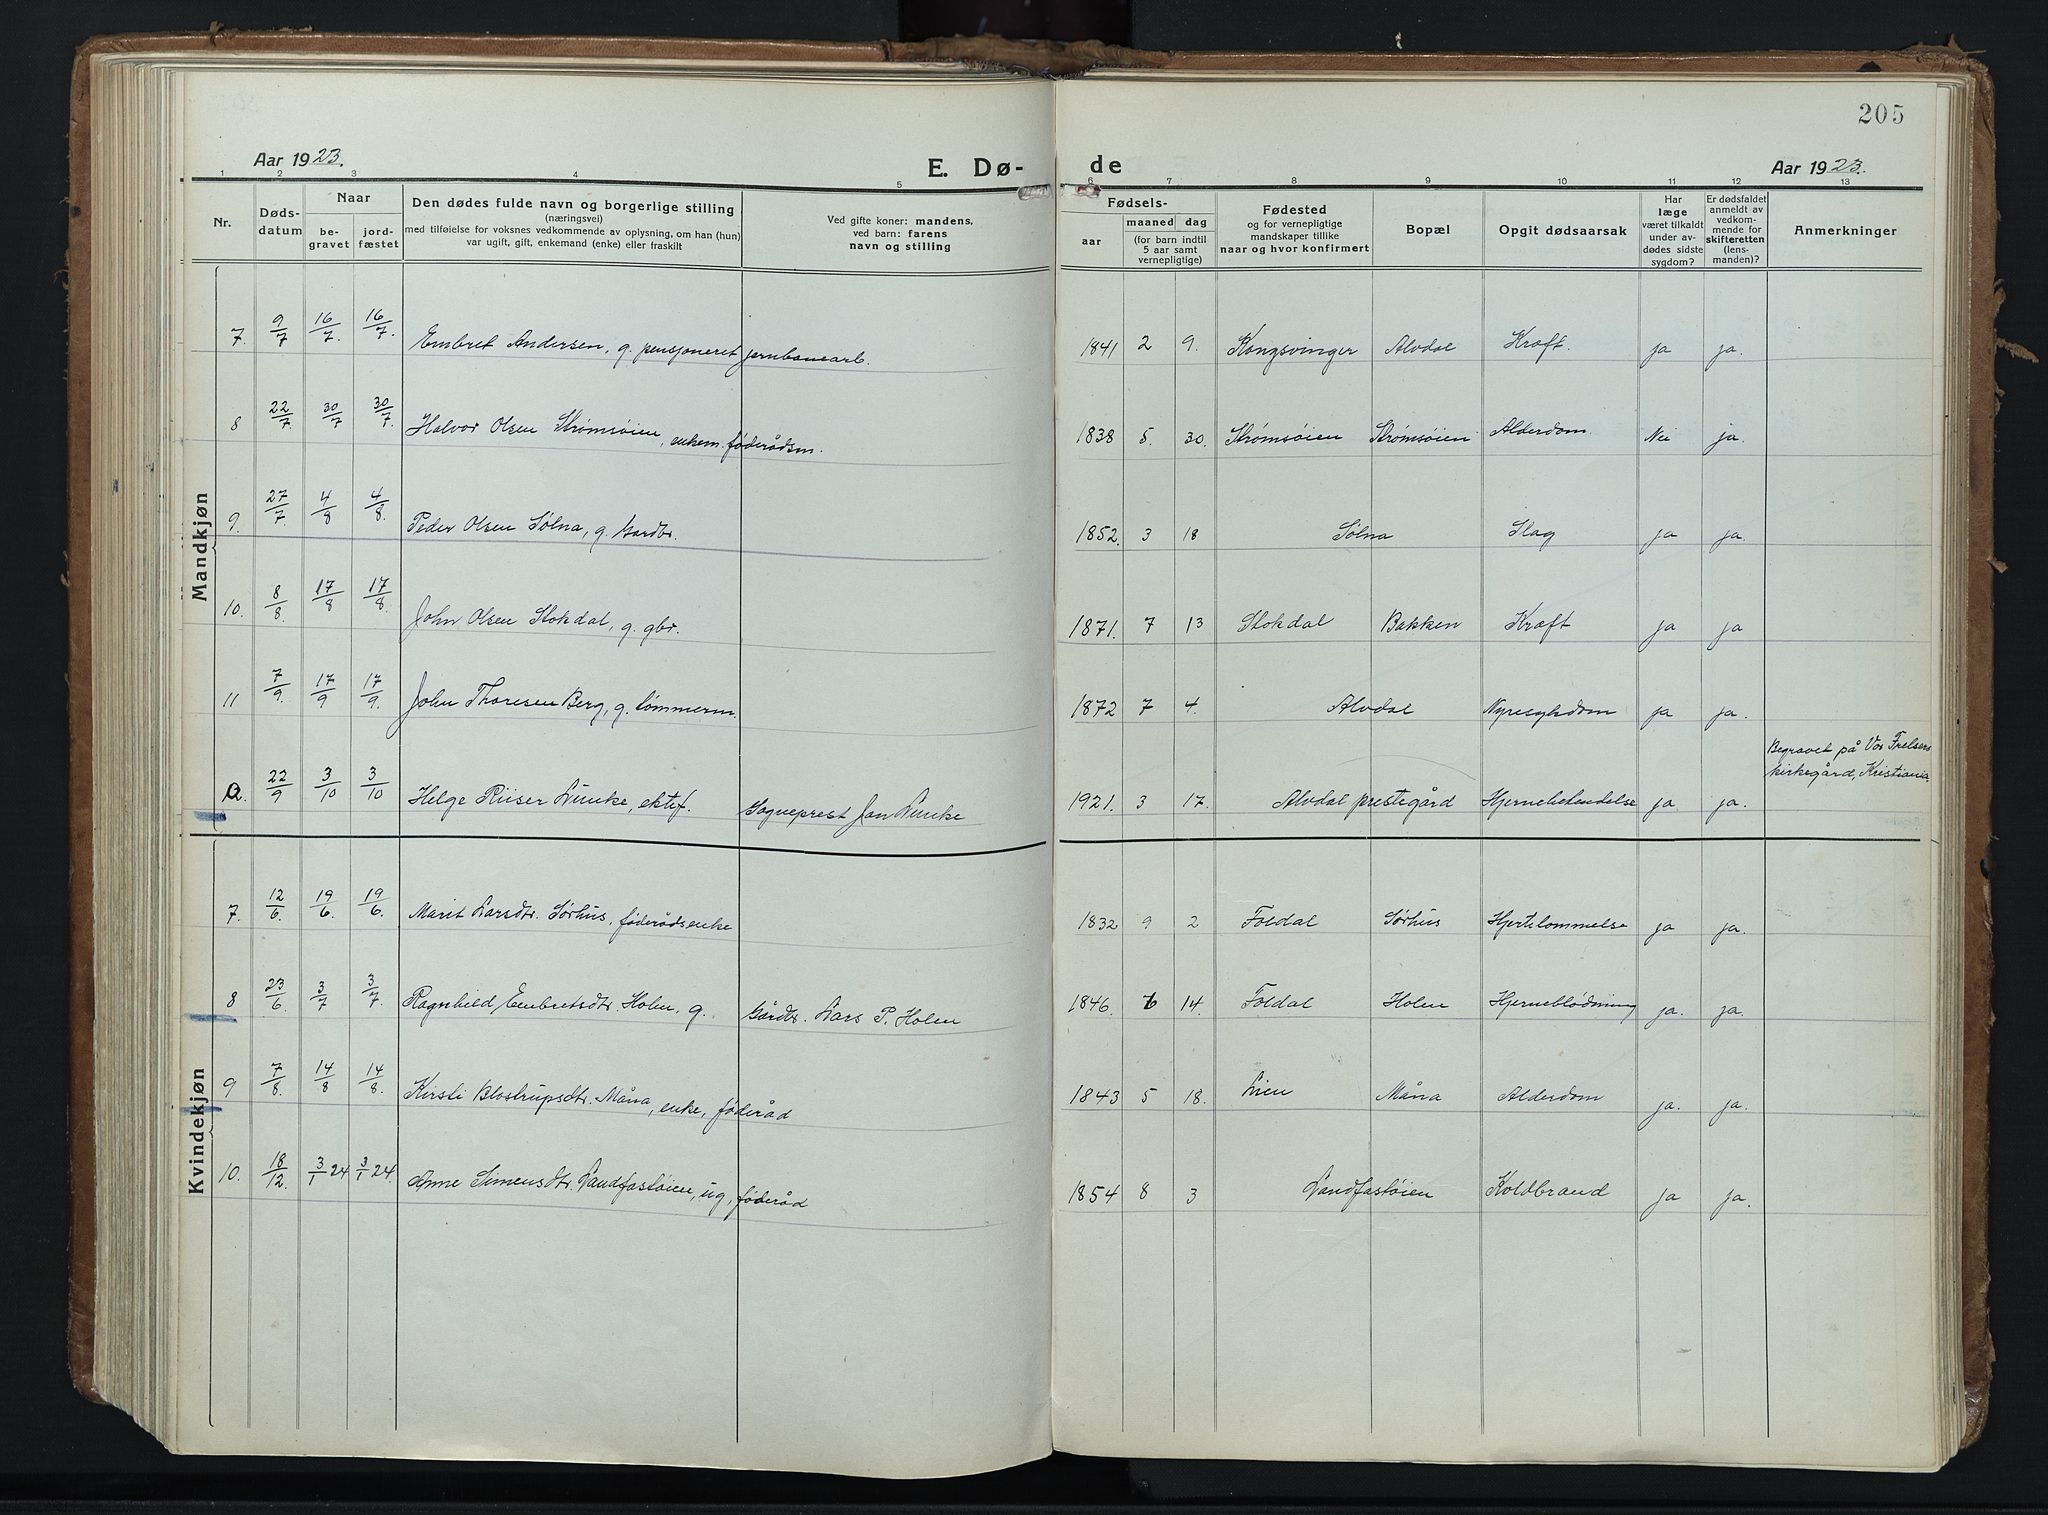 205
Aar 1923. E. Dø- de Aar 1923.
1 2 3 4 5 6 7 8 9 10 11 12 13
Nr. Døds-datum Naar be-gravet jord-fæstet Den dødes fulde navn og borgerlige stilling (næringsvei) med tilføielse for voksnes vedkommende av oplysning, om han (hun) var ugift, gift, enkemand (enke) eller fraskilt Ved gifte koner: mandens, ved barn: farens navn og stilling Fødsels- aar maaned dag (for barn indtil 5 aar samt vernepligtige) Fødested og for vernepligtige mandskaper tillike naar og hvor konfirmert Bopæl Opgit dødsaarsak Har læge været tilkaldt under av-dødes sidste sygdom? Er dødsfaldet anmeldt av vedkom-mende for skifteretten (lens-manden)? Anmerkninger
Mandkjøn
7. 9/7 16/7. 16/7. Embret Andersen, g. pensjoneret jernbanearb. 1841 2 9. Kongsvinger Alvdal Kræft. ja ja.
8 22/7. 30/7 30/7. Halvor Olsen Strømsøien, enkem. føderådsm. 1838 5. 30. Strømsøien Strømsøien Alderdom. Nei ja.
9. 27/7. 4/8 4/8. Peder Olsen Sølna, g. Gardbr. 1852. 3 18 Sølna Slag ja ja.
10. 8/8. 17/8 17/8. John Olsen Stokdal, g. gbr. 1871. 7 13 Stokdal Bakken Kræft ja ja
11 7/9. 17/9 17/9. John Thoresen Berg, g. tømmerm. 1872 7 4. Alvdal Nyresykdom ja ja.
12. 22/9 3/10 3/10 Helge Riiser Lunke, ektef. Sogneprest Jan Lunke 1921. 3 17. Alvdal prestegård Hjernebetendelse ja ja. Begravet på Vor Frelsers kirkegård, Kristiania.
Kvindekjøn
7. 12/6. 19/6 19/6. Marit Larsdtr. Sørhus, føderådsenke 1832 9 2 Foldal Sørhus Hjertelammelse ja ja.
8 23/6 3/7 3/7. Ragnhild Embretsdtr. Holen, g. Gårdbr. Lars P. Holen 1846. 14. Foldal Holen Hjerneblødning ja. ja.
9 7/8. 14/8 14/8. Kirsti Blostrupsdtr. Måna, enke, føderåd 1843 5 18. Lien Måna Alderdom ja. ja.
10. 18/12. 3/1 24 3/1 24. Anne Simensdtr. Landfastøien, ug, føderåd 1854 8 3 Landfastøien Koldbrand ja ja.